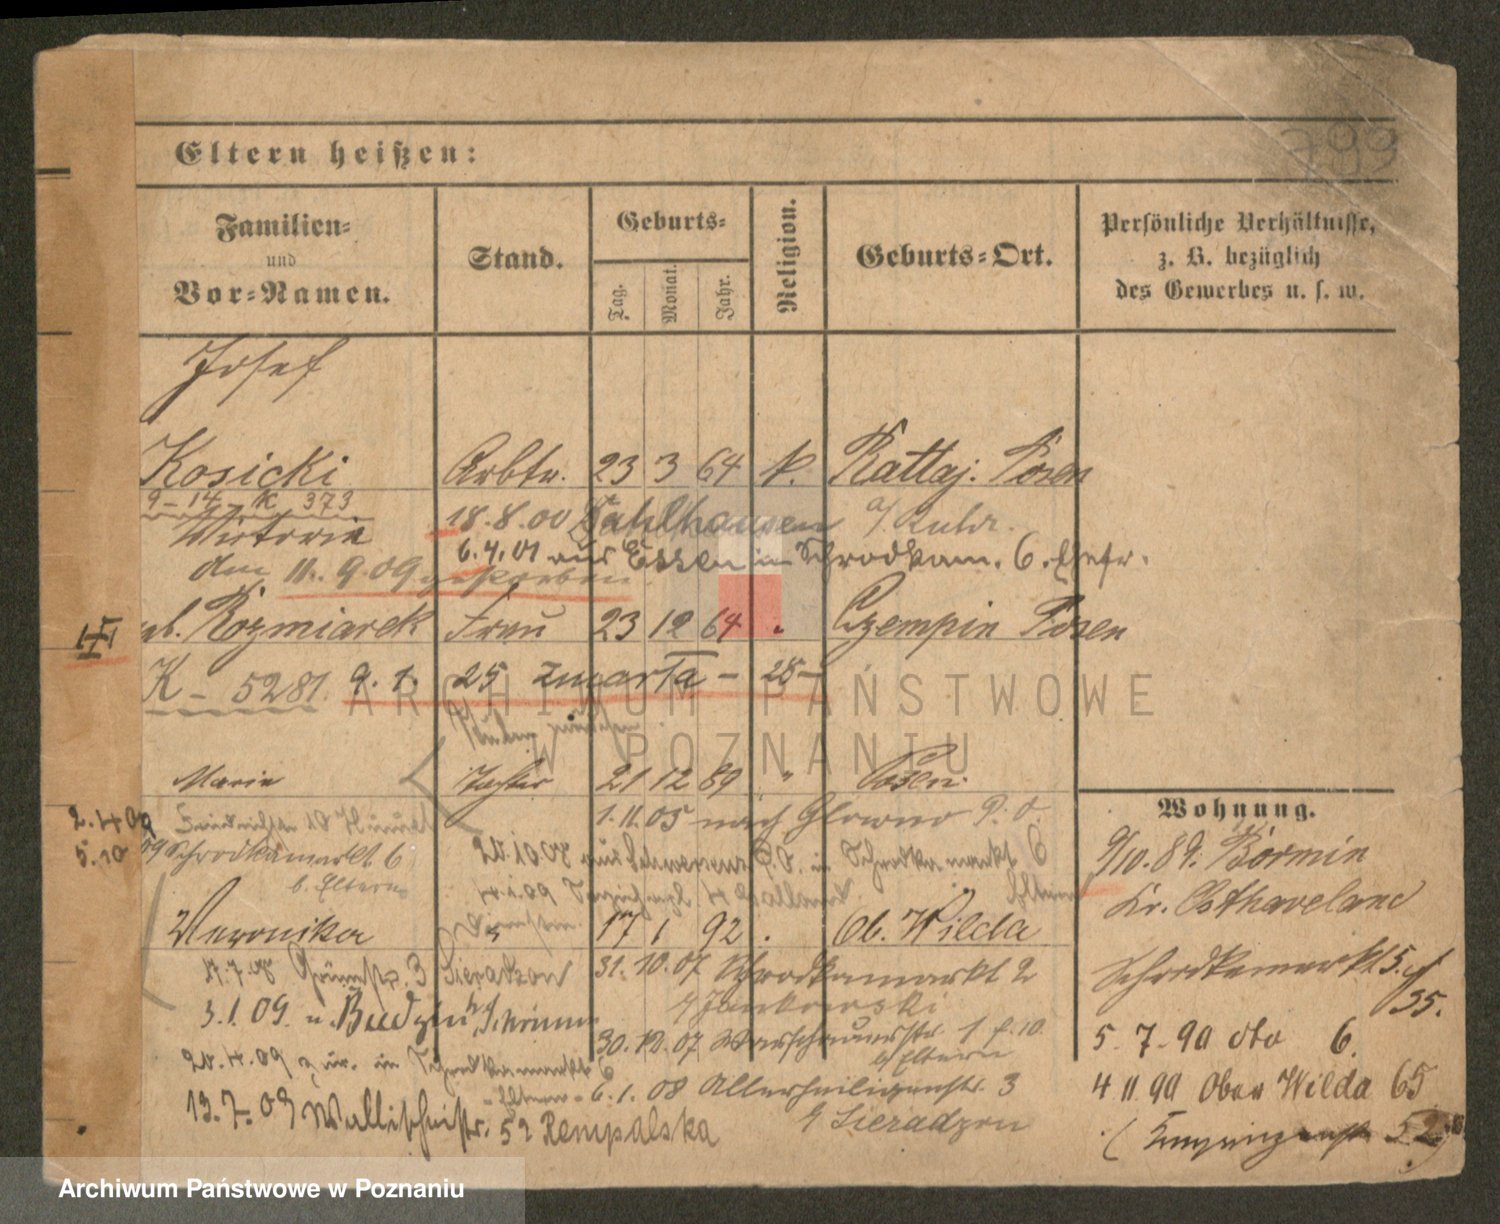 799
Eltern heißen:
Familien- und Vor-Namen.
Stand.
Geburts-
Tag.
Monat.
Jahr.
Religion.
Geburts-Ort.
Persönliche Verhältnisse,
z. B. bezüglich
des Gewerbes u. s. w.
Josef
Kosicki Arbtr. 23 3 64 k. Rattaj. Posen
9-14-K 373
Victoria 18.8.00 Dahlhausen a/ Ruhr.
6.4.01 aus Essen in Schrodkam. 6. Ehefr.
den 11. 9.09 gestorben
geb. Rozmiarek Frau 23 12 64 " Czempin Posen
K - 5281. 9. 1. 25 zmarła - 28-
Marie Tochter 21 12 89 " Posen
2.4.09
5.10 09 Schrodkamarkt 6
b. Eltern
1.11.05 nach Glowno P. O.
20.10 08 aus Schwersenz P.O. in Schrodkamarkt 6
Eltern
Veronika " 17 1 92 . Ob. Wilda
17.7.08 3 Sieradzon
31.10.07 Schrodkamarkt 2
b/ Jankowski
3.1.09. n. Budzyn b/ Schrimm
30.12.07 Warschauerstr. 1 b. 10.
b/ Eltern
20.4.09 zur. in Schrodkamarkt 6
- Eltern -
6.1.08 Allerheiligenstr. 3
b/ Sieradzon
13.7.09 Wallischeistr. 52 Rempalska
Wohnung.
9/10.89. Börnin
Kr. Osthaveland
Schrodkamarkt 5.
35.
5. 7. 90 dto 6.
4 11 90 Ober Wilda 65
52
ARCHIWUM PAŃSTWOWE
W POZNANIU
Archiwum Państwowe w Poznaniu